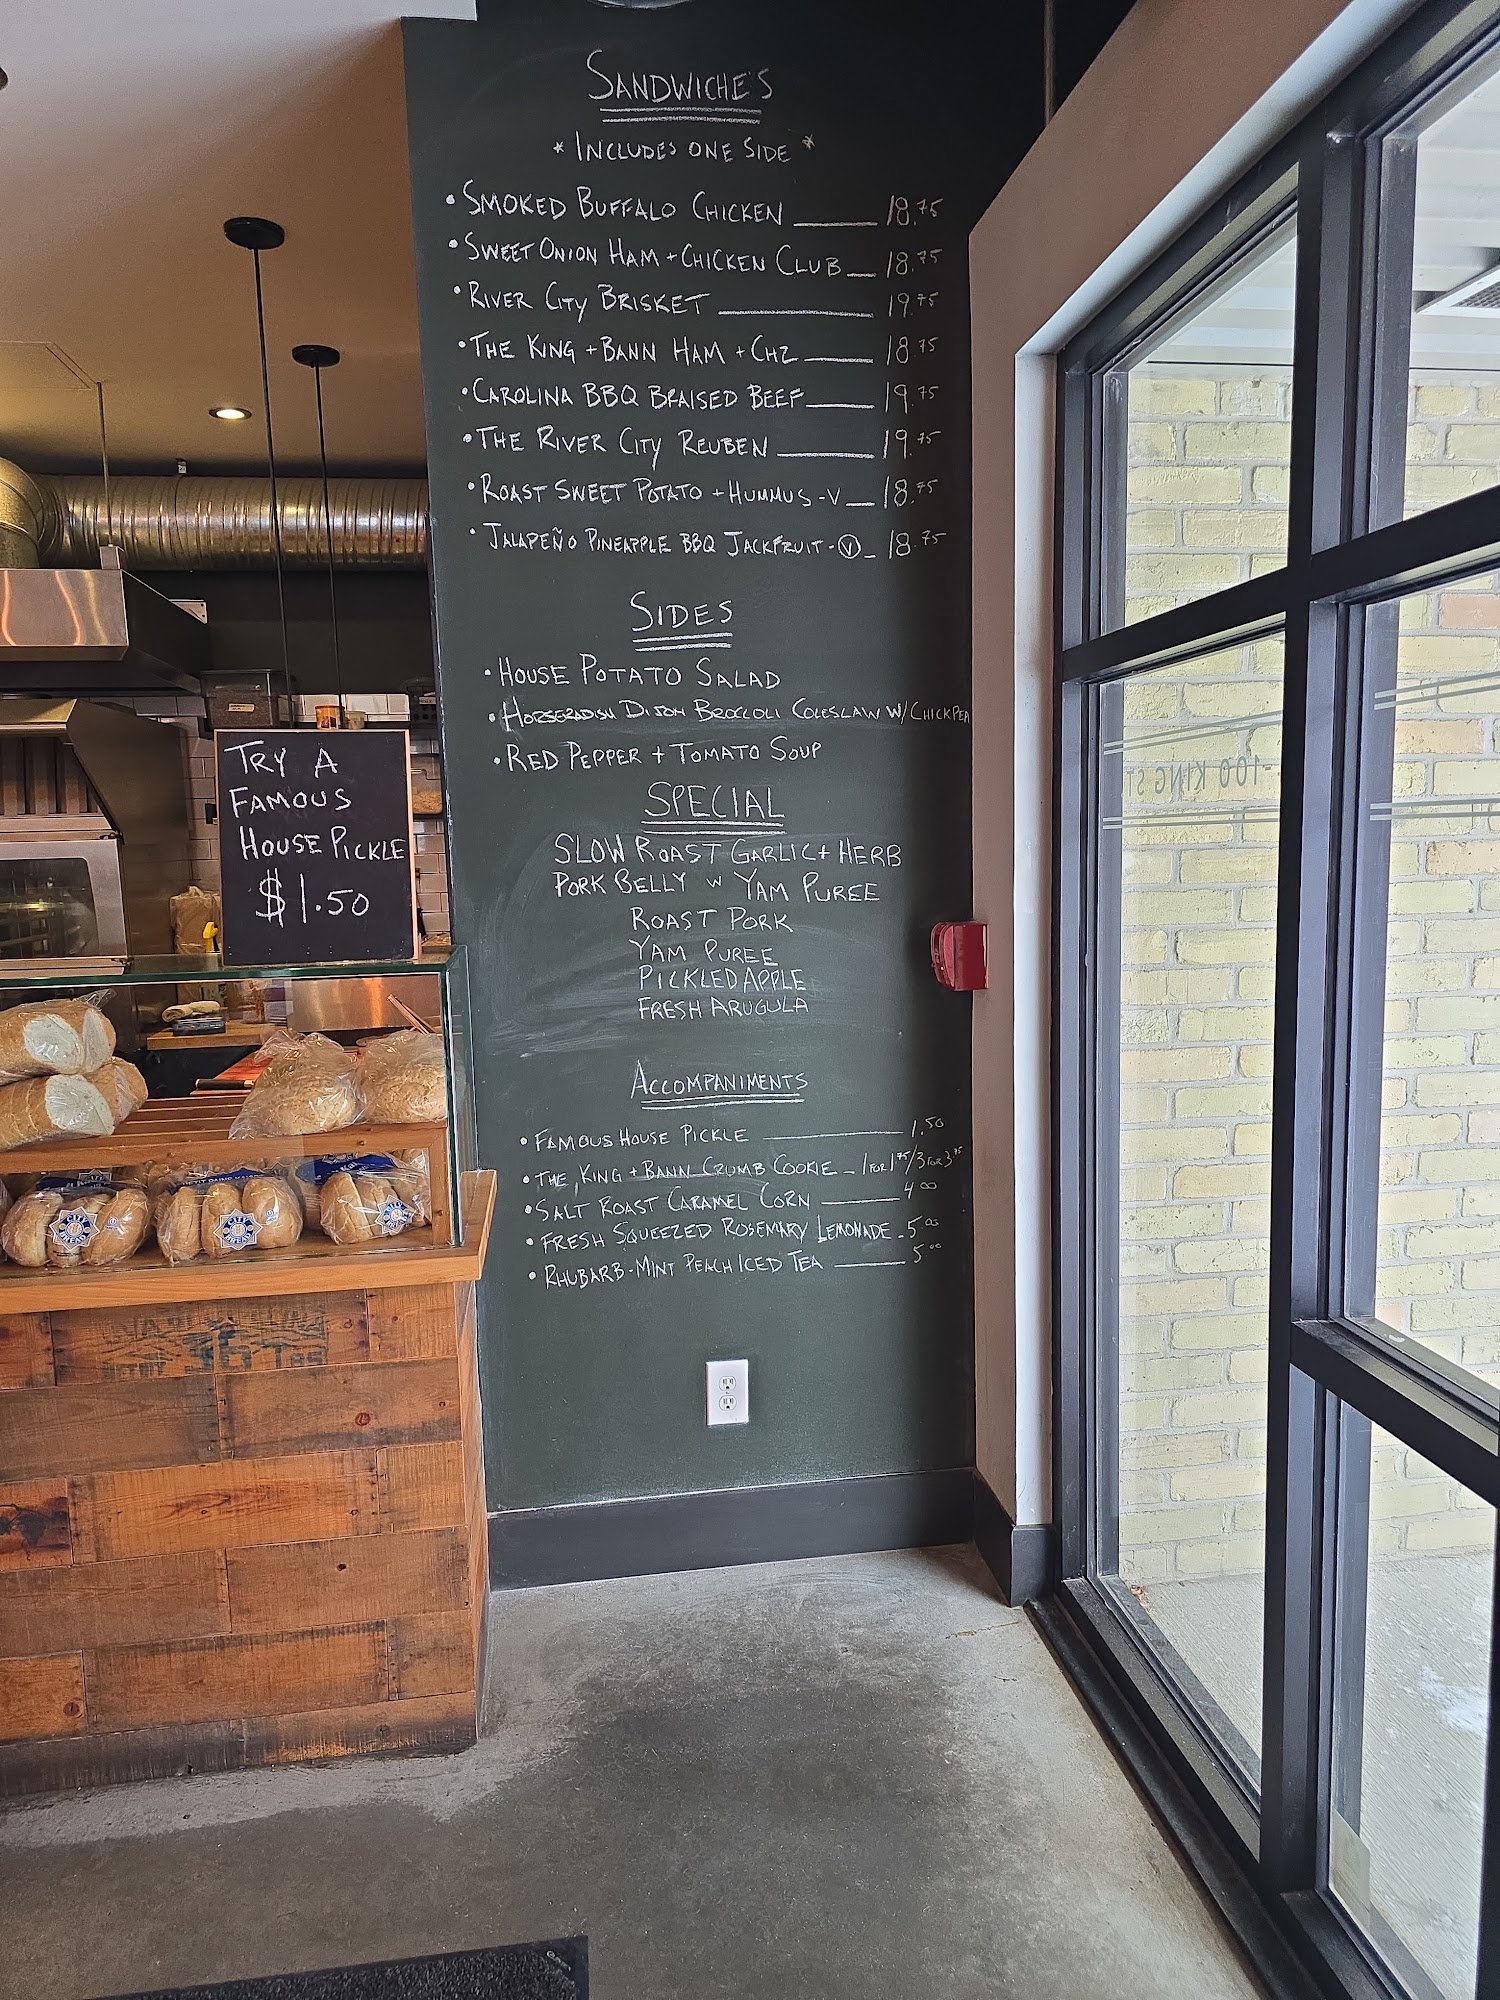 SANDWICHE'S
* INCLUDES ONE SIDE *
• SMOKED BUFFALO CHICKEN ____ 18.75
• SWEET ONION HAM + CHICKEN CLUB __ 18.75
• RIVER CITY BRISKET ____ 19.75
• THE KING + BANN HAM + CHZ ____ 18.75
• CAROLINA BBQ BRAISED BEEF ____ 19.75
• THE RIVER CITY REUBEN ____ 19.75
• ROAST SWEET POTATO + HUMMUS - V __ 18.75
• JALAPEÑO PINEAPPLE BBQ JACKFRUIT - Ⓥ _ 18.75
SIDES
• HOUSE POTATO SALAD
• HORSERADISH DIJON BROCCOLI COLESLAW W/ CHICKPEA
• RED PEPPER + TOMATO SOUP
SPECIAL
SLOW ROAST GARLIC + HERB
PORK BELLY W YAM PUREE
ROAST PORK
YAM PUREE
PICKLED APPLE
FRESH ARUGULA
ACCOMPANIMENTS
• FAMOUS HOUSE PICKLE ____ 1.50
• THE KING + BANN CRUMB COOKIE - 1 FOR 1.75 / 3 FOR 3.75
• SALT ROAST CARAMEL CORN ____ 4.00
• FRESH SQUEEZED ROSEMARY LEMONADE - 5.00
• RHUBARB-MINT PEACH ICED TEA ____ 5.00
TRY A
FAMOUS
HOUSE PICKLE
$1.50
CITY
BREAD
CITY
BREAD
CITY
BREAD
-100 KING ST